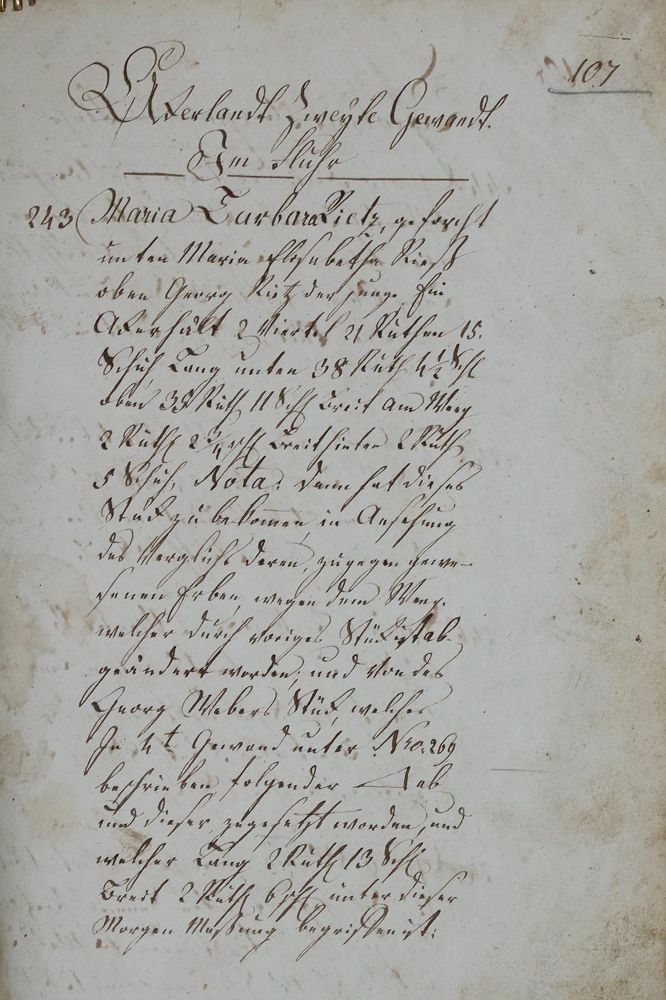 107
Ackerlandt Zweyte Gewandt.
Im Fluhr
243 Maria Barbara Rietz, geforcht
unten Maria Elisabetha Rieß
oben Georg Rietz der junge. Ein
Acker hält 2 Viertel 21 Ruthen 15.
Schuh Lang unten 38 Ruth 4½ Sch
oben 39 Ruth 11 Sch Breit am Weeg
2 Ruth 2¾ sch Breit hinten 2 Ruth
5 Schuh, Nota: dann hat dieses
Stuck zu bekommen, in Ansehung
des Verglichs deren, zugegen gewe-
senen Erben, wegen dem Weeg.
welcher durch voriges Stuck ist ab-
geändert worden, und von des
Georg Webers Stück, welches
In 4t Gewand unter Nro. 269
beschrieben folgender ab
und dieser zugesetzt worden, und
welcher Lang 2 Ruth 13 Sch
Breit 2 Ruth 6 sch unter dieser
Morgen Messung begriffen ist: